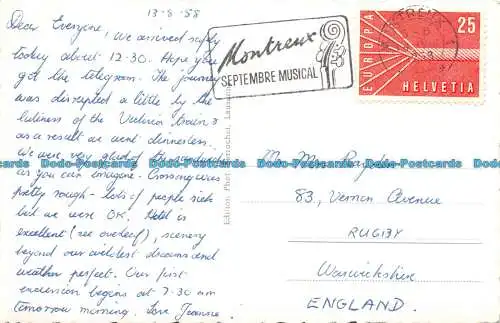 13-8-58
Dear Everyone, We arrived safely
today about 12.30. Hope you
got the telegram. The journey
was disrupted a little by the
lateness of the Victoria train &
as a result we went dinnerless.
We were very glad of
as you can imagine. Crossing was
pretty rough - lots of people sick
but we were OK. Hotel is
excellent (see overleaf), scenery
beyond our wildest dreams and
weather perfect. Our first
excursion begins at 7.30 am
tomorrow morning. Love Jeanne.
Montreux
SEPTEMBRE MUSICAL
MONTREUX 1
EUROPA
25
HELVETIA
83, Vernon Avenue
RUGBY
Warwickshire
ENGLAND.
Dodo-Postcards Dodo-Postcards Dodo-Postcards Dodo-Postcards Dodo-Postcards